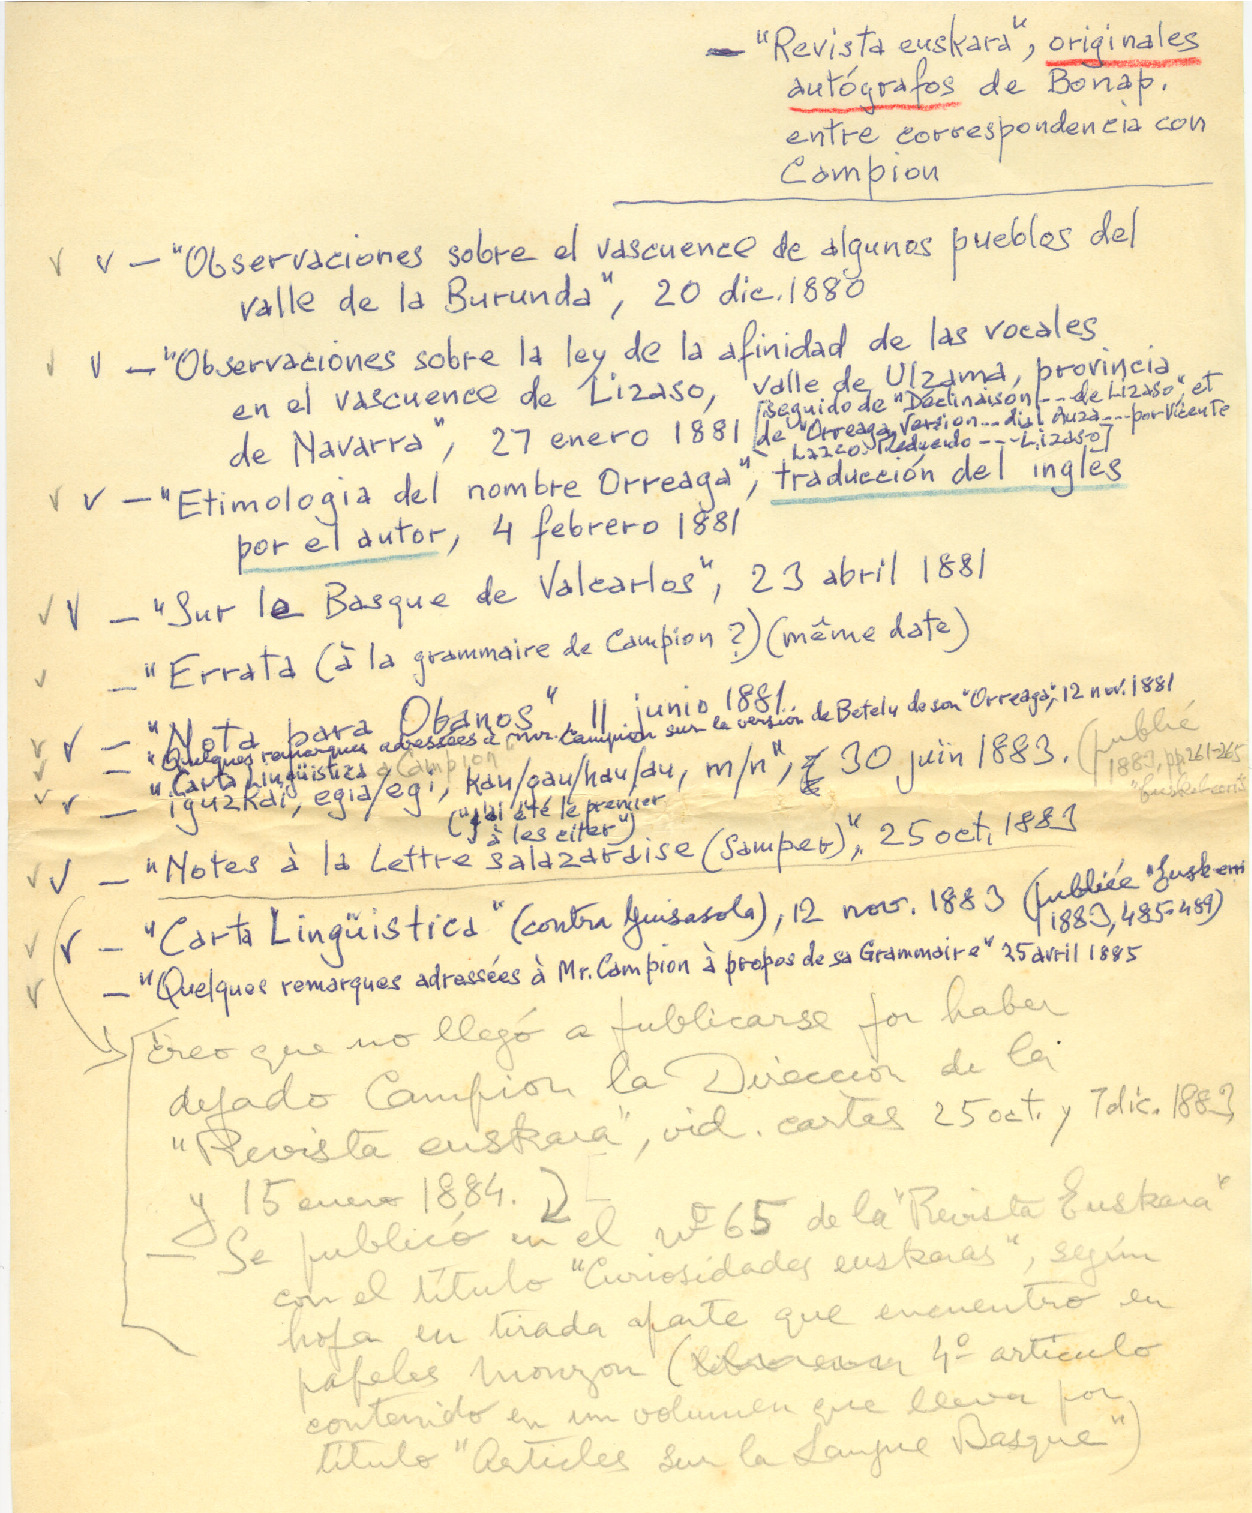 — "Revista euskara", originales
autógrafos de Bonap.
entre correspondencia con
Campion
✓ v — "Observaciones sobre el vascuence de algunos pueblos del
valle de la Burunda", 20 dic. 1880
✓ v — "Observaciones sobre la ley de la afinidad de las vocales
en el vascuence de Lizaso, valle de Ulzama, provincia
de Navarra", 27 enero 1881
[seguido de "Déclinaison --- de Lizaso", et
de "Orreaga, Version --- dial. Auza --- por Vicente
Lazco --- Lizaso]
✓ v — "Etimologia del nombre Orreaga", traducción del ingles
por el autor, 4 febrero 1881
✓ v — "Sur le Basque de Valcarlos", 23 abril 1881
✓ — "Errata (à la grammaire de Campion ?) (même date)
✓ v — "Nota para Obanos" 11 junio 1881
✓ — "Quelques remarques adressées à Mr. Campion sur la versión de Betelu de son "Orreaga", 12 nov. 1881
"Carta Lingüistica a Campion"
✓ v — iguzkai, egia/egi, kau/gau/hau/au, m/n", 30 juin 1883. (publié
1883, pp 261-265
("j'ai été le premier
à les citer")
✓ v — "Notes à la Lettre salazaraise (Samper)", 25 oct. 1883
✓ v — "Carta Lingüistica" (contra Guisasola), 12 nov. 1883 (publiée "Euskal-erri
1883, 485-489)
✓ — "Quelques remarques adressées à Mr. Campion à propos de sa Grammaire" 25 avril 1885
Creo que no llegó a publicarse por haber
dejado Campion la Dirección de la
"Revista euskara", vid. cartas 25 oct. y 7 dic. 1883
y 15 enero 1884.
— Se publicó en el nº 65 de la "Revista Euskara"
con el título "Curiosidades euskaras", según
hoja en tirada aparte que encuentro en
papeles Monzon ( 4º artículo
contenido en un volumen que lleva por
título "Articles sur la Langue Basque")